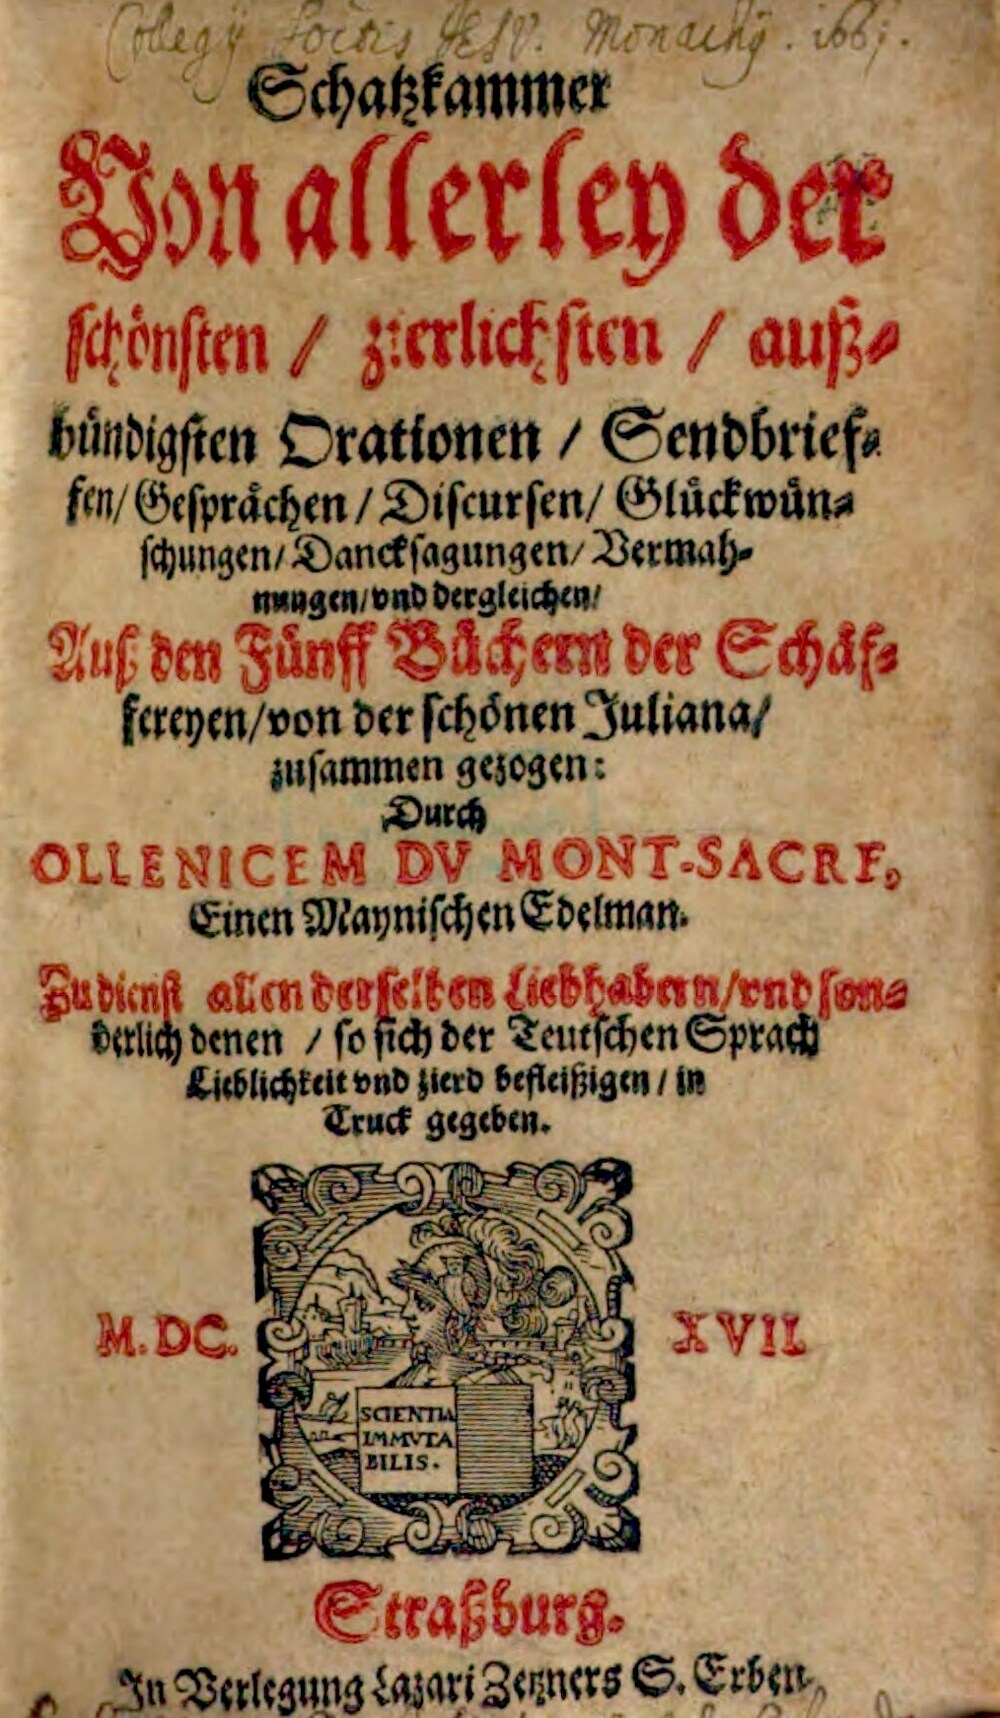 Collegÿ Soctis JESV. Monachÿ. 1667.
Schatzkammer
Von allerley der
schönsten / zierlichsten / auß⸗
bündigsten Orationen / Sendbrief⸗
fen/ Gesprächen / Discursen/ Glückwün⸗
schungen/ Dancksagungen/ Vermah⸗
nungen/ vnd dergleichen/
Auß den Fünff Büchern der Schäf⸗
fereyen/ von der schönen Juliana/
zusammen gezogen:
Durch
OLLENICEM DV MONT-SACRE,
Einen Maynischen Edelman.
Zu dienst allen derselben Liebhabern/ vnd son⸗
derlich denen / so sich der Teutschen Sprach
Lieblichkeit vnd zierd befleißigen / in
Truck gegeben.
M. DC. XVII.
SCIENTIA
IMMVTA
BILIS.
Straßburg.
In Verlegung Lazari Zetzners S. Erben,